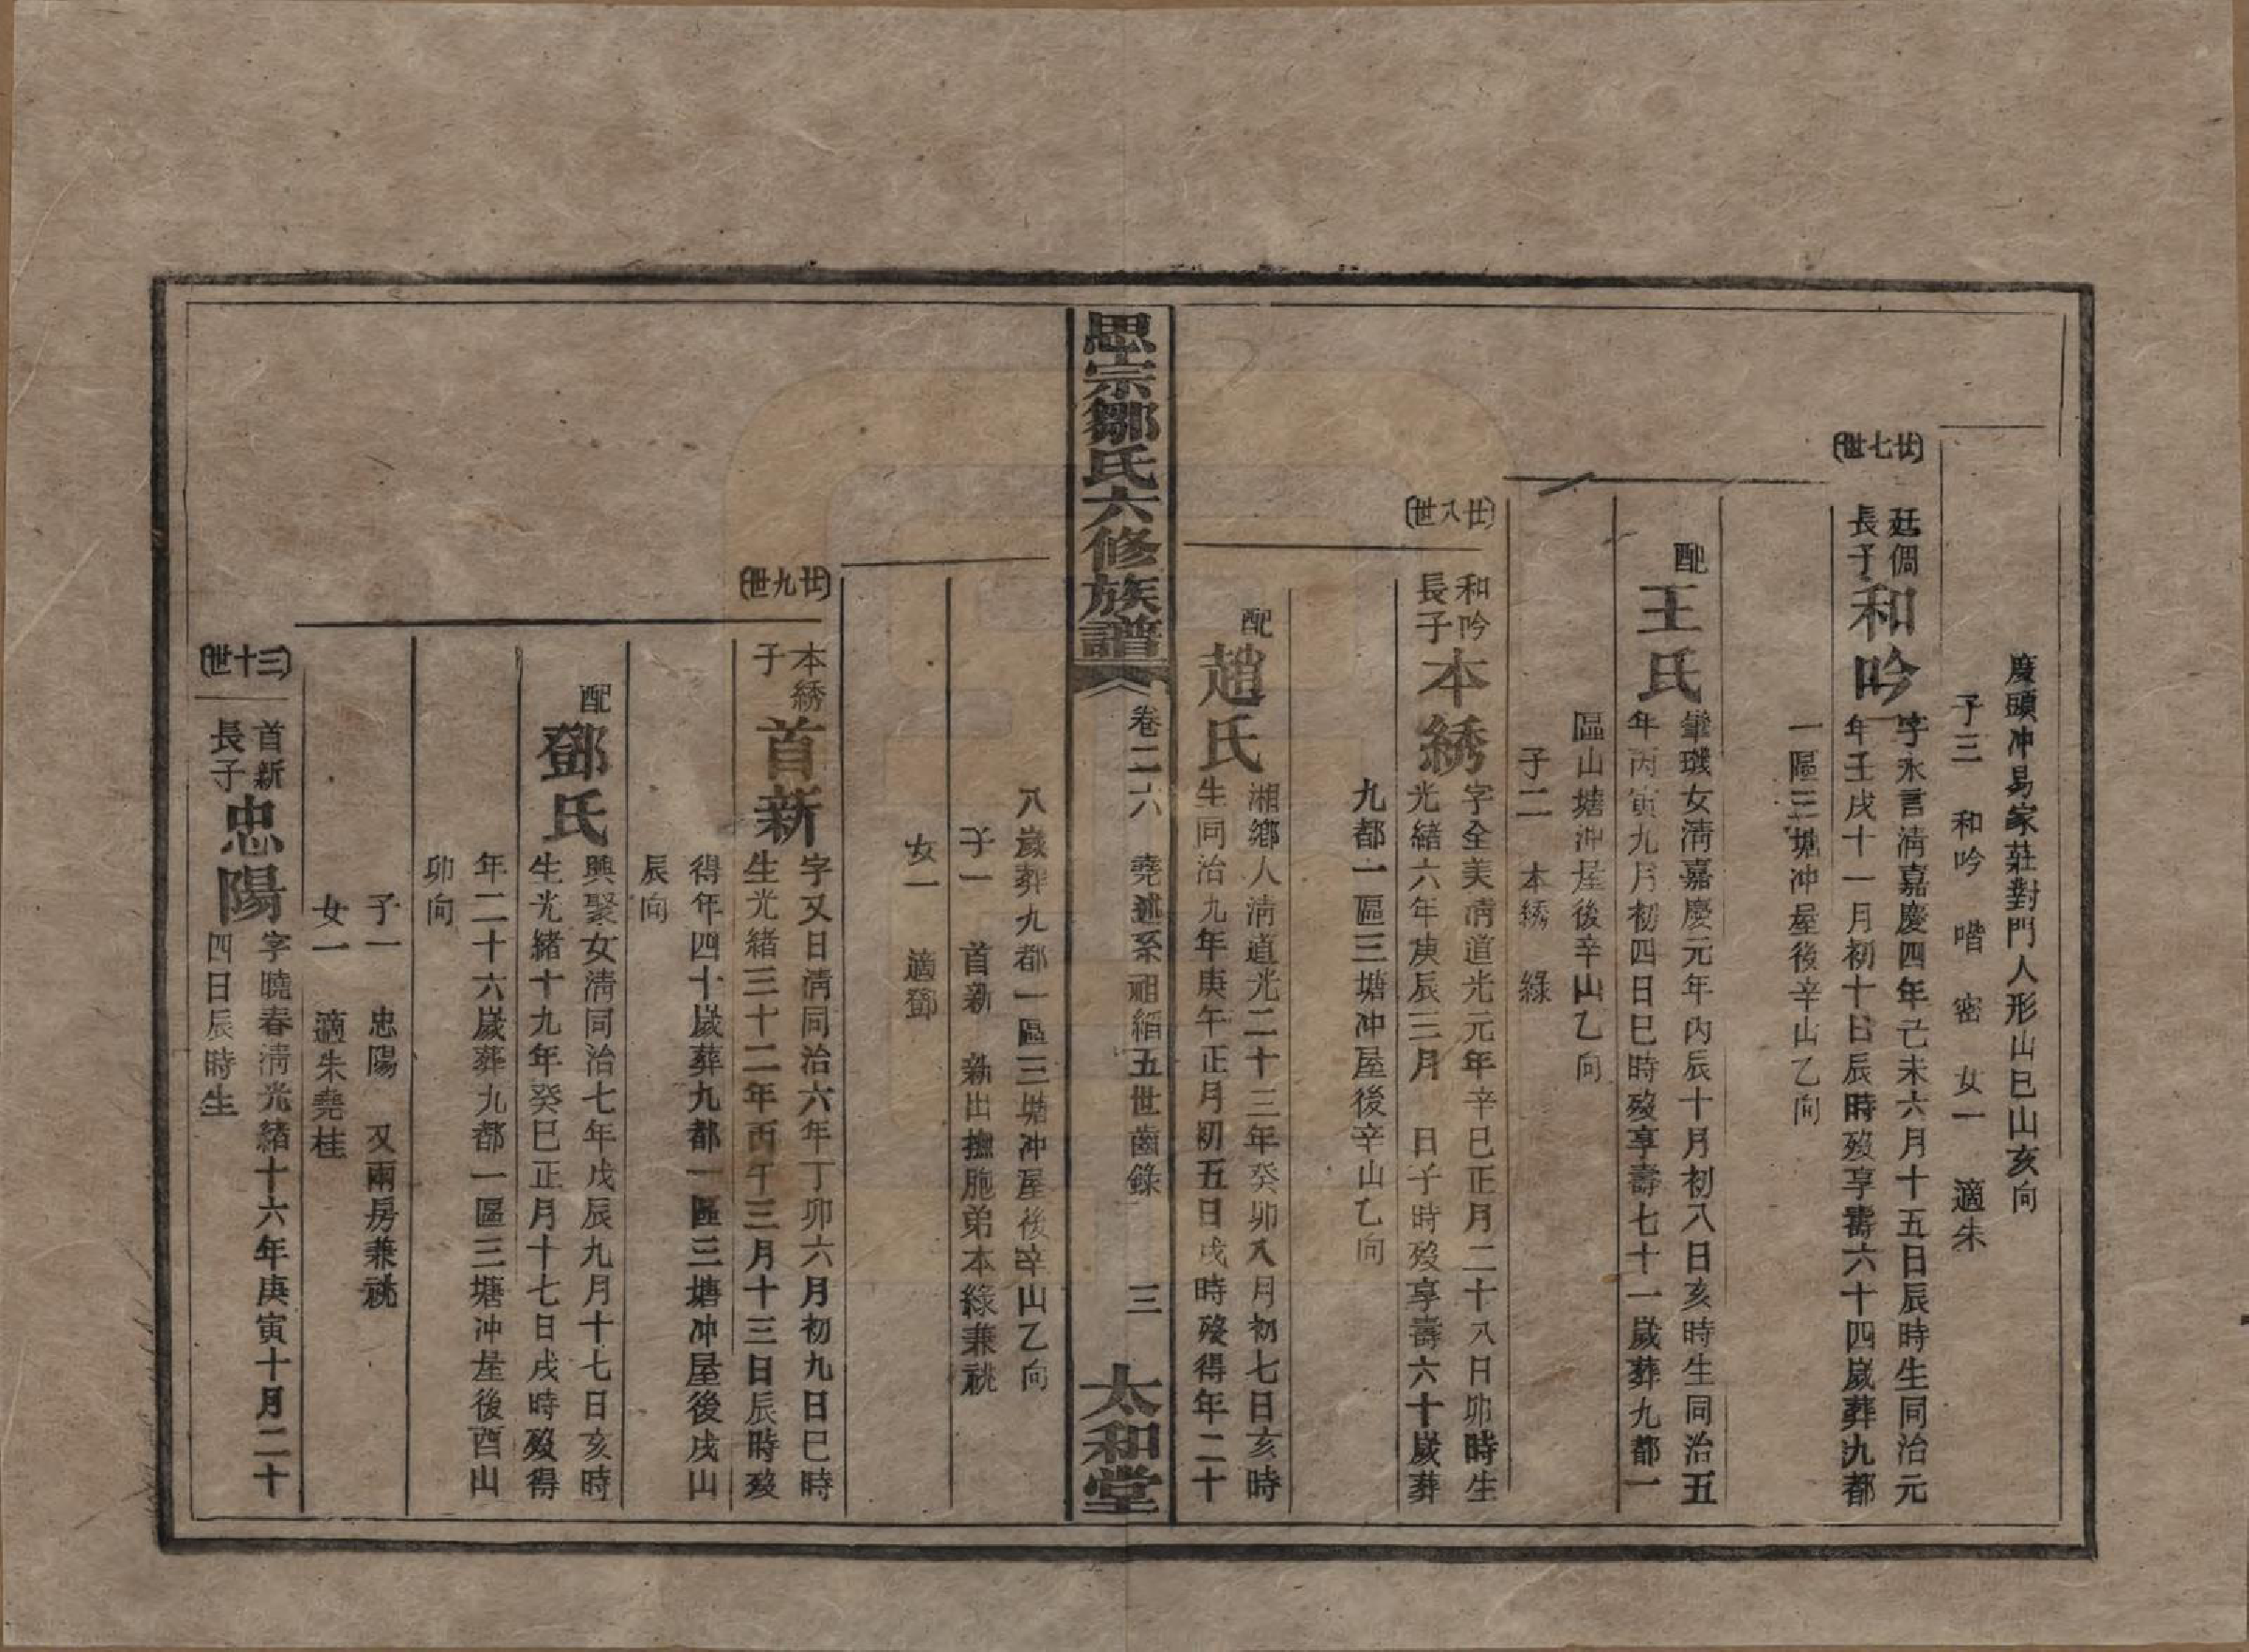 慶頭冲易家莊對門人形山巳山亥向
子三　和吟　喈　密　女一　適朱
廿七世
廷倜長子
和吟
字永言淸嘉慶四年己未六月十五日辰時生同治元
年壬戌十一月初十日辰時歿享壽六十四歲葬九都
一區三塘冲屋後辛山乙向
配
王氏
肇璣女淸嘉慶元年丙辰十月初八日亥時生同治五
年丙寅九月初四日巳時歿享壽七十一歲葬九都一
區山塘冲屋後辛山乙向
子二　本綉　綠
廿八世
和吟長子
本綉
字全美淸道光元年辛巳正月二十八日卯時生
光緒六年庚辰三月　日子時歿享壽六十歲葬
九都一區三塘冲屋後辛山乙向
配
趙氏
湘鄉人淸道光二十三年癸卯八月初七日亥時
生同治九年庚午正月初五日戌時歿得年二十
思宗鄒氏六修族譜
卷二六　堯述系祖縚五世齒錄　三
太和堂
八歲葬九都一區三塘冲屋後辛山乙向
子一　首新　新出撫胞弟本綠兼祧
女一　適鄧
廿九世
本綉子
首新
字又日淸同治六年丁卯六月初九日巳時
生光緒三十二年丙午三月十三日辰時歿
得年四十歲葬九都一區三塘冲屋後戌山
辰向
配
鄧氏
興聚女淸同治七年戊辰九月十七日亥時
生光緒十九年癸巳正月十七日戌時歿得
年二十六歲葬九都一區三塘冲屋後酉山
卯向
子一　忠陽　又兩房兼祧
女一　適朱堯桂
三十世
首新長子
忠陽
字曉春淸光緒十六年庚寅十月二十
四日辰時生